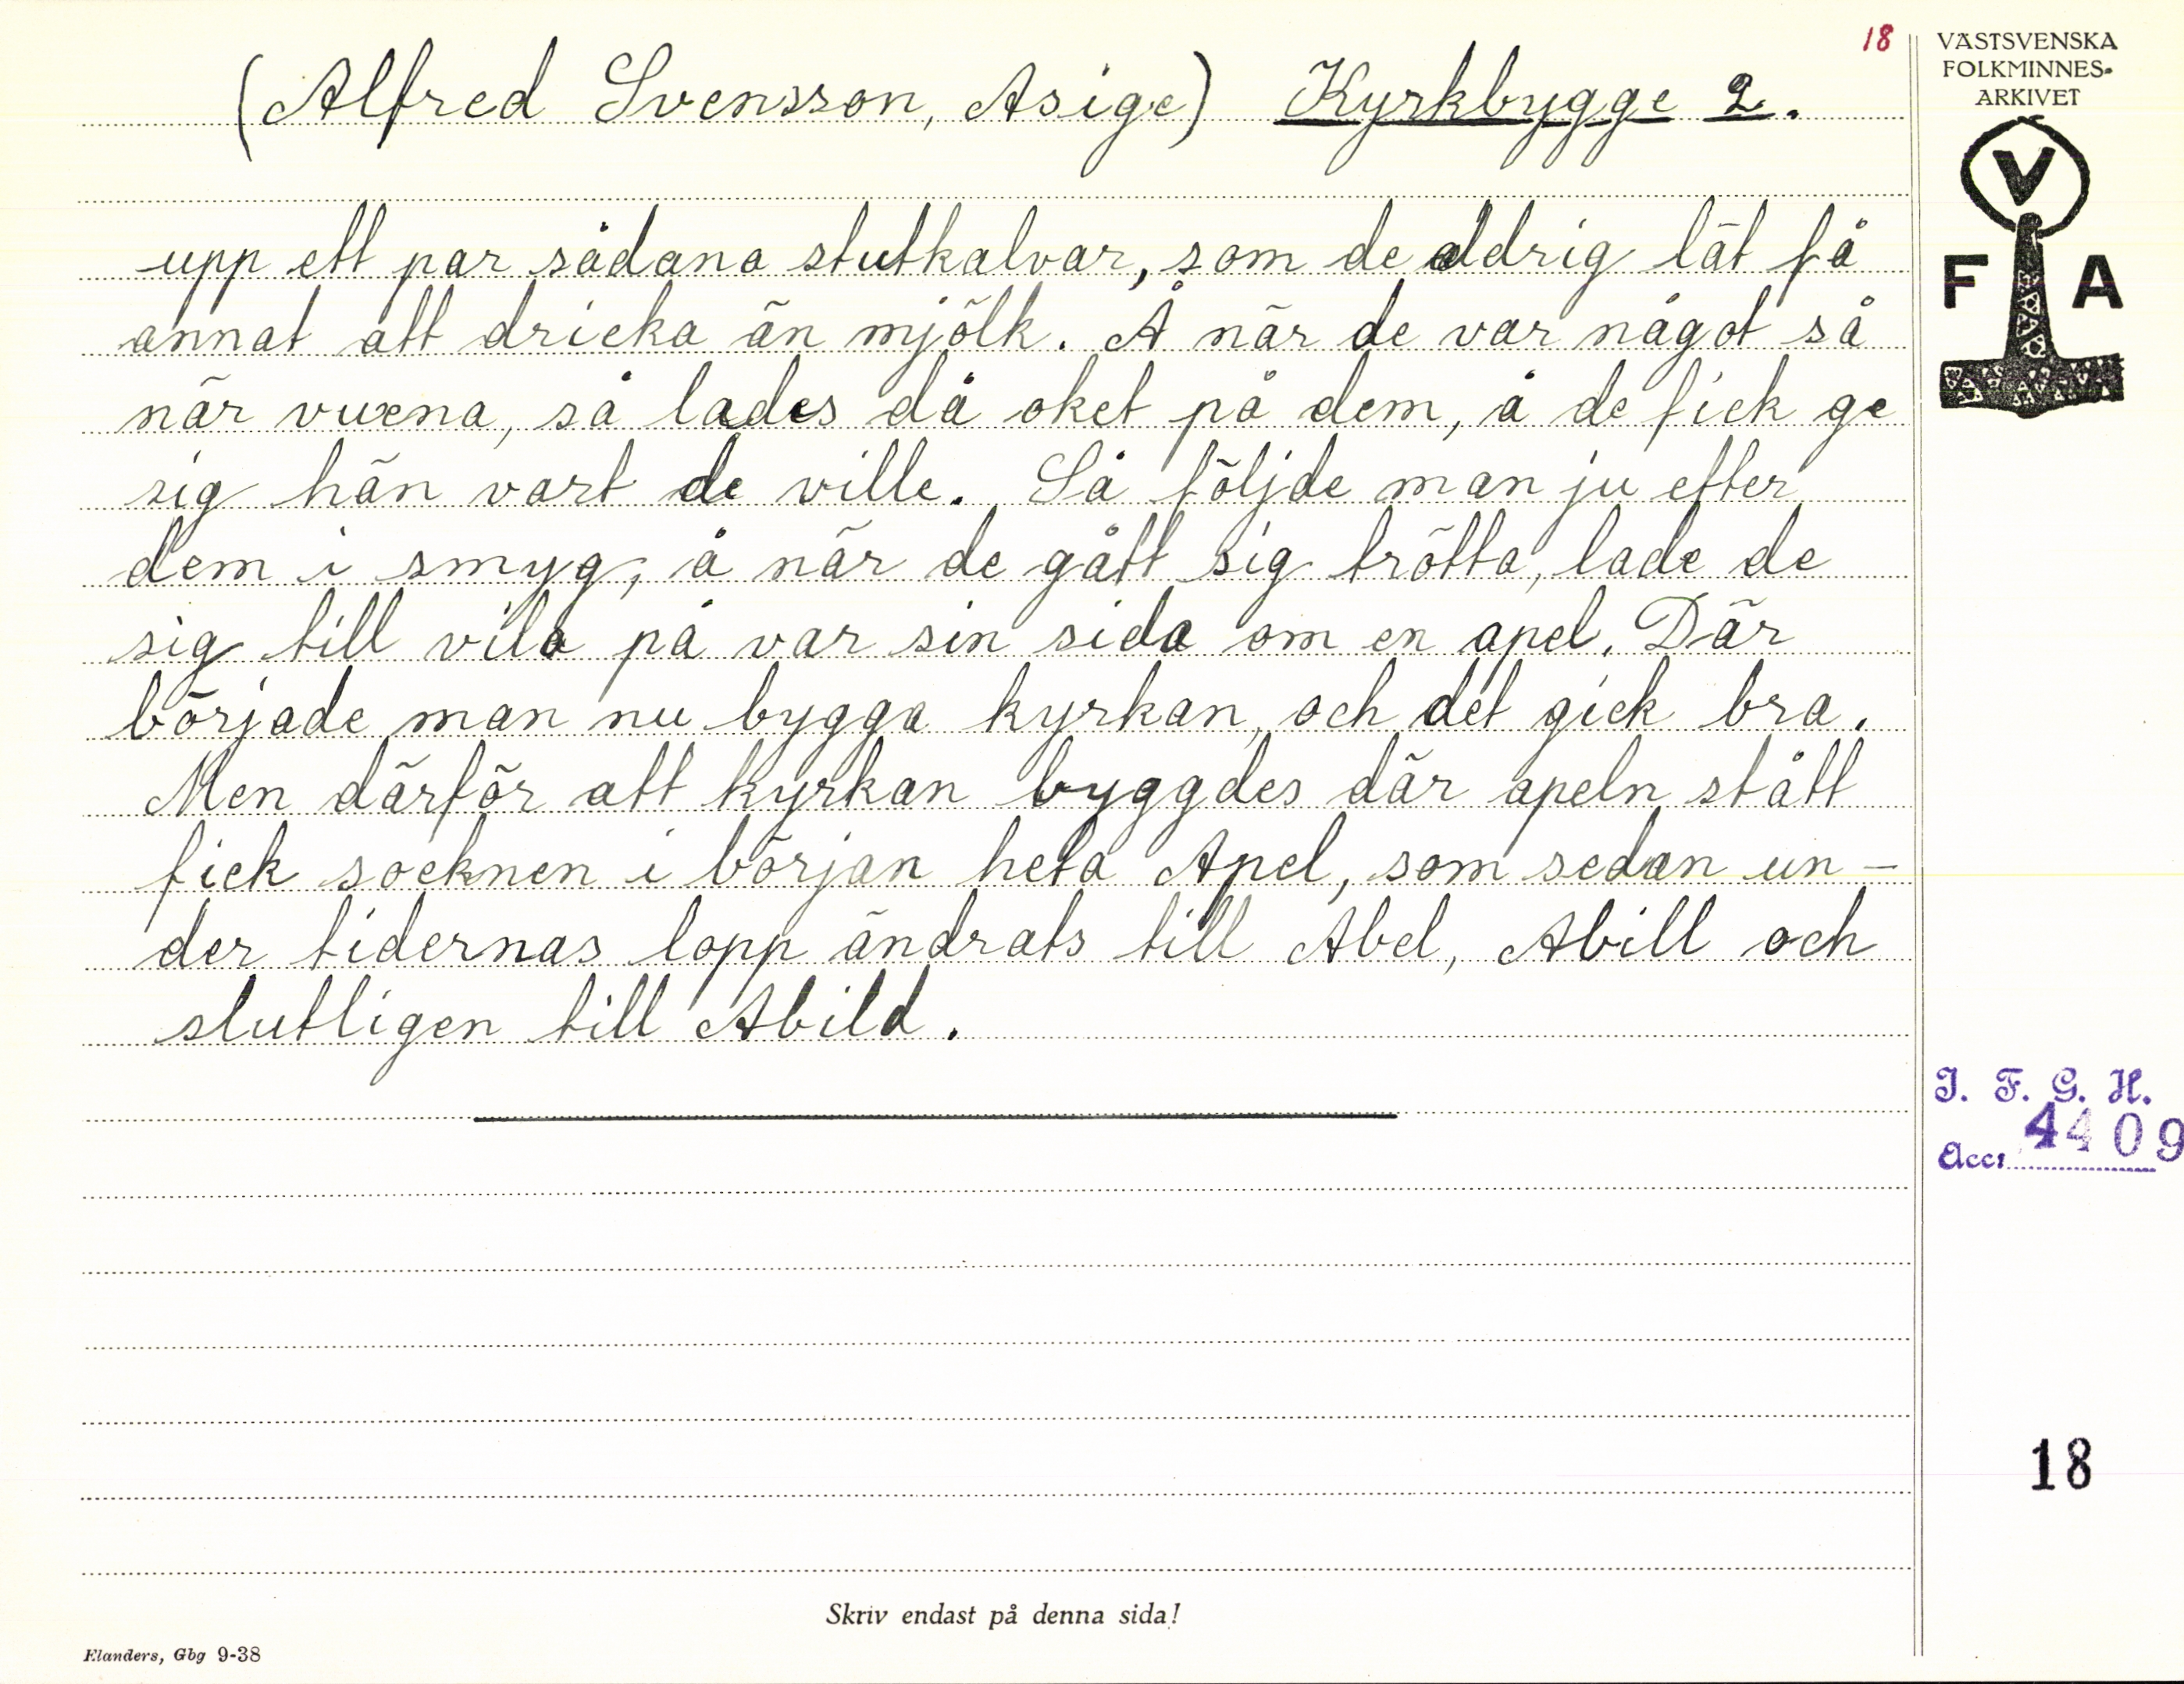 18
(Alfred Svensson, Asige) Kyrkbygge 2.
upp ett par sådana stutkalvar, som de aldrig lät få
annat att dricka än mjölk. Å när de var något så
när vuxna, så lades då oket på dem, å de fick ge
sig hän vart de ville. Så följde man ju efter
dem i smyg, å när de gått sig trötta, lade de
sig till vila på var sin sida om en apel. Där
började man nu bygga kyrkan, och det gick bra.
Men därför att kyrkan byggdes där apeln stått
fick socknen i början heta Apel, som sedan un-
der tidernas lopp ändrats till Abel, Abill och
slutligen till Abild.
Skriv endast på denna sida!
Elanders, Gbg 9-38
VÄSTSVENSKA
FOLKMINNES-
ARKIVET
V
F A
I. F. G. H.
Acc. 4409
18